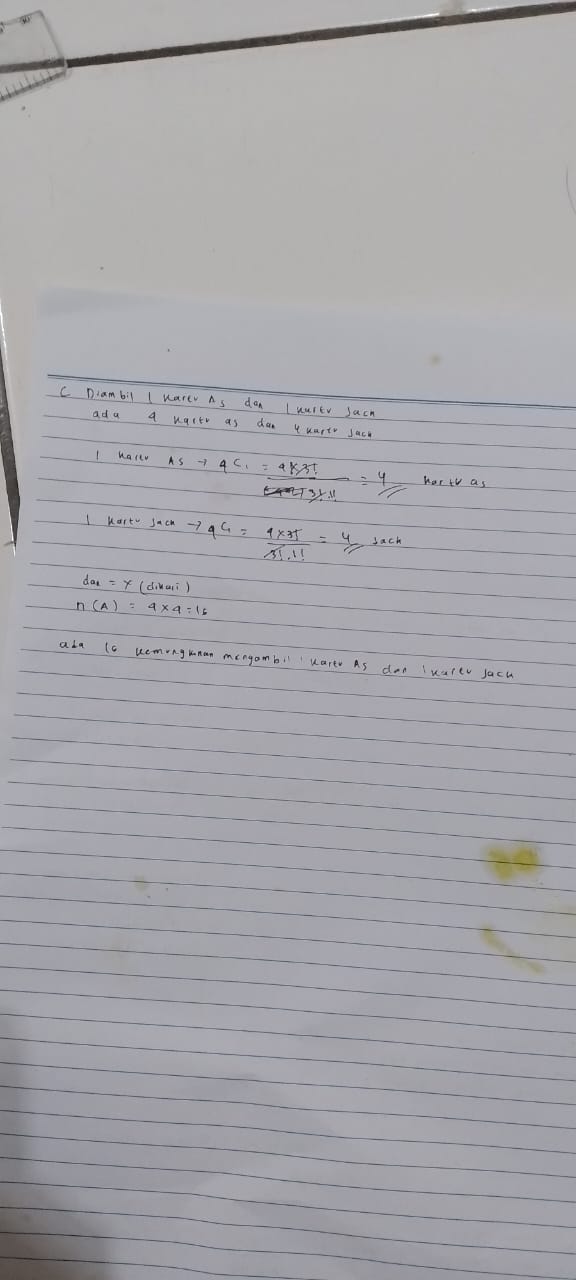 C Diambil 1 kartu As dan 1 kartu Jack
ada 4 kartu as dan 4 kartu Jack
1 kartu As → 4C1 = 4x3! / 3!.1! = 4 kartu as
1 kartu Jack → 4C1 = 4x3! / 3!.1! = 4 Jack
dan = x (dikali)
n(A) = 4x4=16
ada 16 kemungkinan mengambil 1 kartu As dan 1 kartu Jack